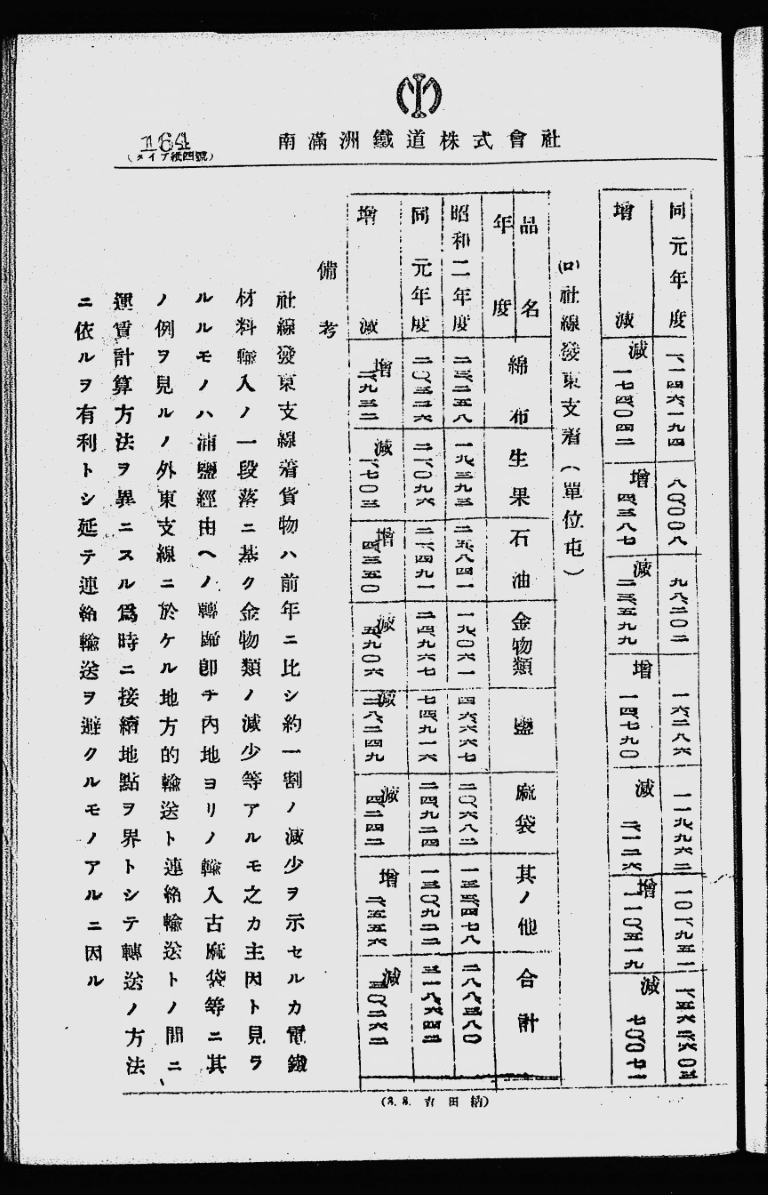 南滿洲鐵道株式會社
164
(タイプ紙四號)
同元年度 一、一四六一九四 八〇〇〇八 九八二〇二 一六二八六 一一九九六二 一〇一、九五一 一、五六二、六〇三
增減 減一七四〇四二 增四、三八七 減二三五九九 增一四七九〇 減二、一二六 增一一〇五一九 減七〇〇七一
(ロ)社線發東支着(單位屯)
品名 年度 綿布 生果 石油 金物類 鹽 麻袋 其ノ他 合計
昭和二年度 二三、二五八 一九、三九三 二五、八四一 一九、〇六一 四六六六七 二〇、六八二 一三三、四七八 二八八三八〇
同元年度 二〇、三二六 二一、〇九六 二一、四九一 二四、九六七 七四、九一六 二四、九二四 一三〇、九二二 三一八、六四二
增減 增二、九三二 減一、七〇三 增四、三五〇 減五、九〇六 減二八二四九 減四二四二 增二、五五六 減三〇、二六二
備考
社線發東支線着貨物ハ前年ニ比シ約一割ノ減少ヲ示セルカ電鐵
材料輸入ノ一段落ニ基ク金物類ノ減少等アルモ之カ主因ト見ラ
ルルモノハ浦鹽經由ヘノ轉歸卽チ內地ヨリノ輸入古麻袋等ニ其
ノ例ヲ見ルノ外東支線ニ於ケル地方的輸送ト連絡輸送トノ間ニ
運賃計算方法ヲ異ニスル爲時ニ接續地點ヲ界トシテ轉送ノ方法
ニ依ルヲ有利トシ延テ連絡輸送ヲ避クルモノアルニ因ル
(3. 8. 吉田納)